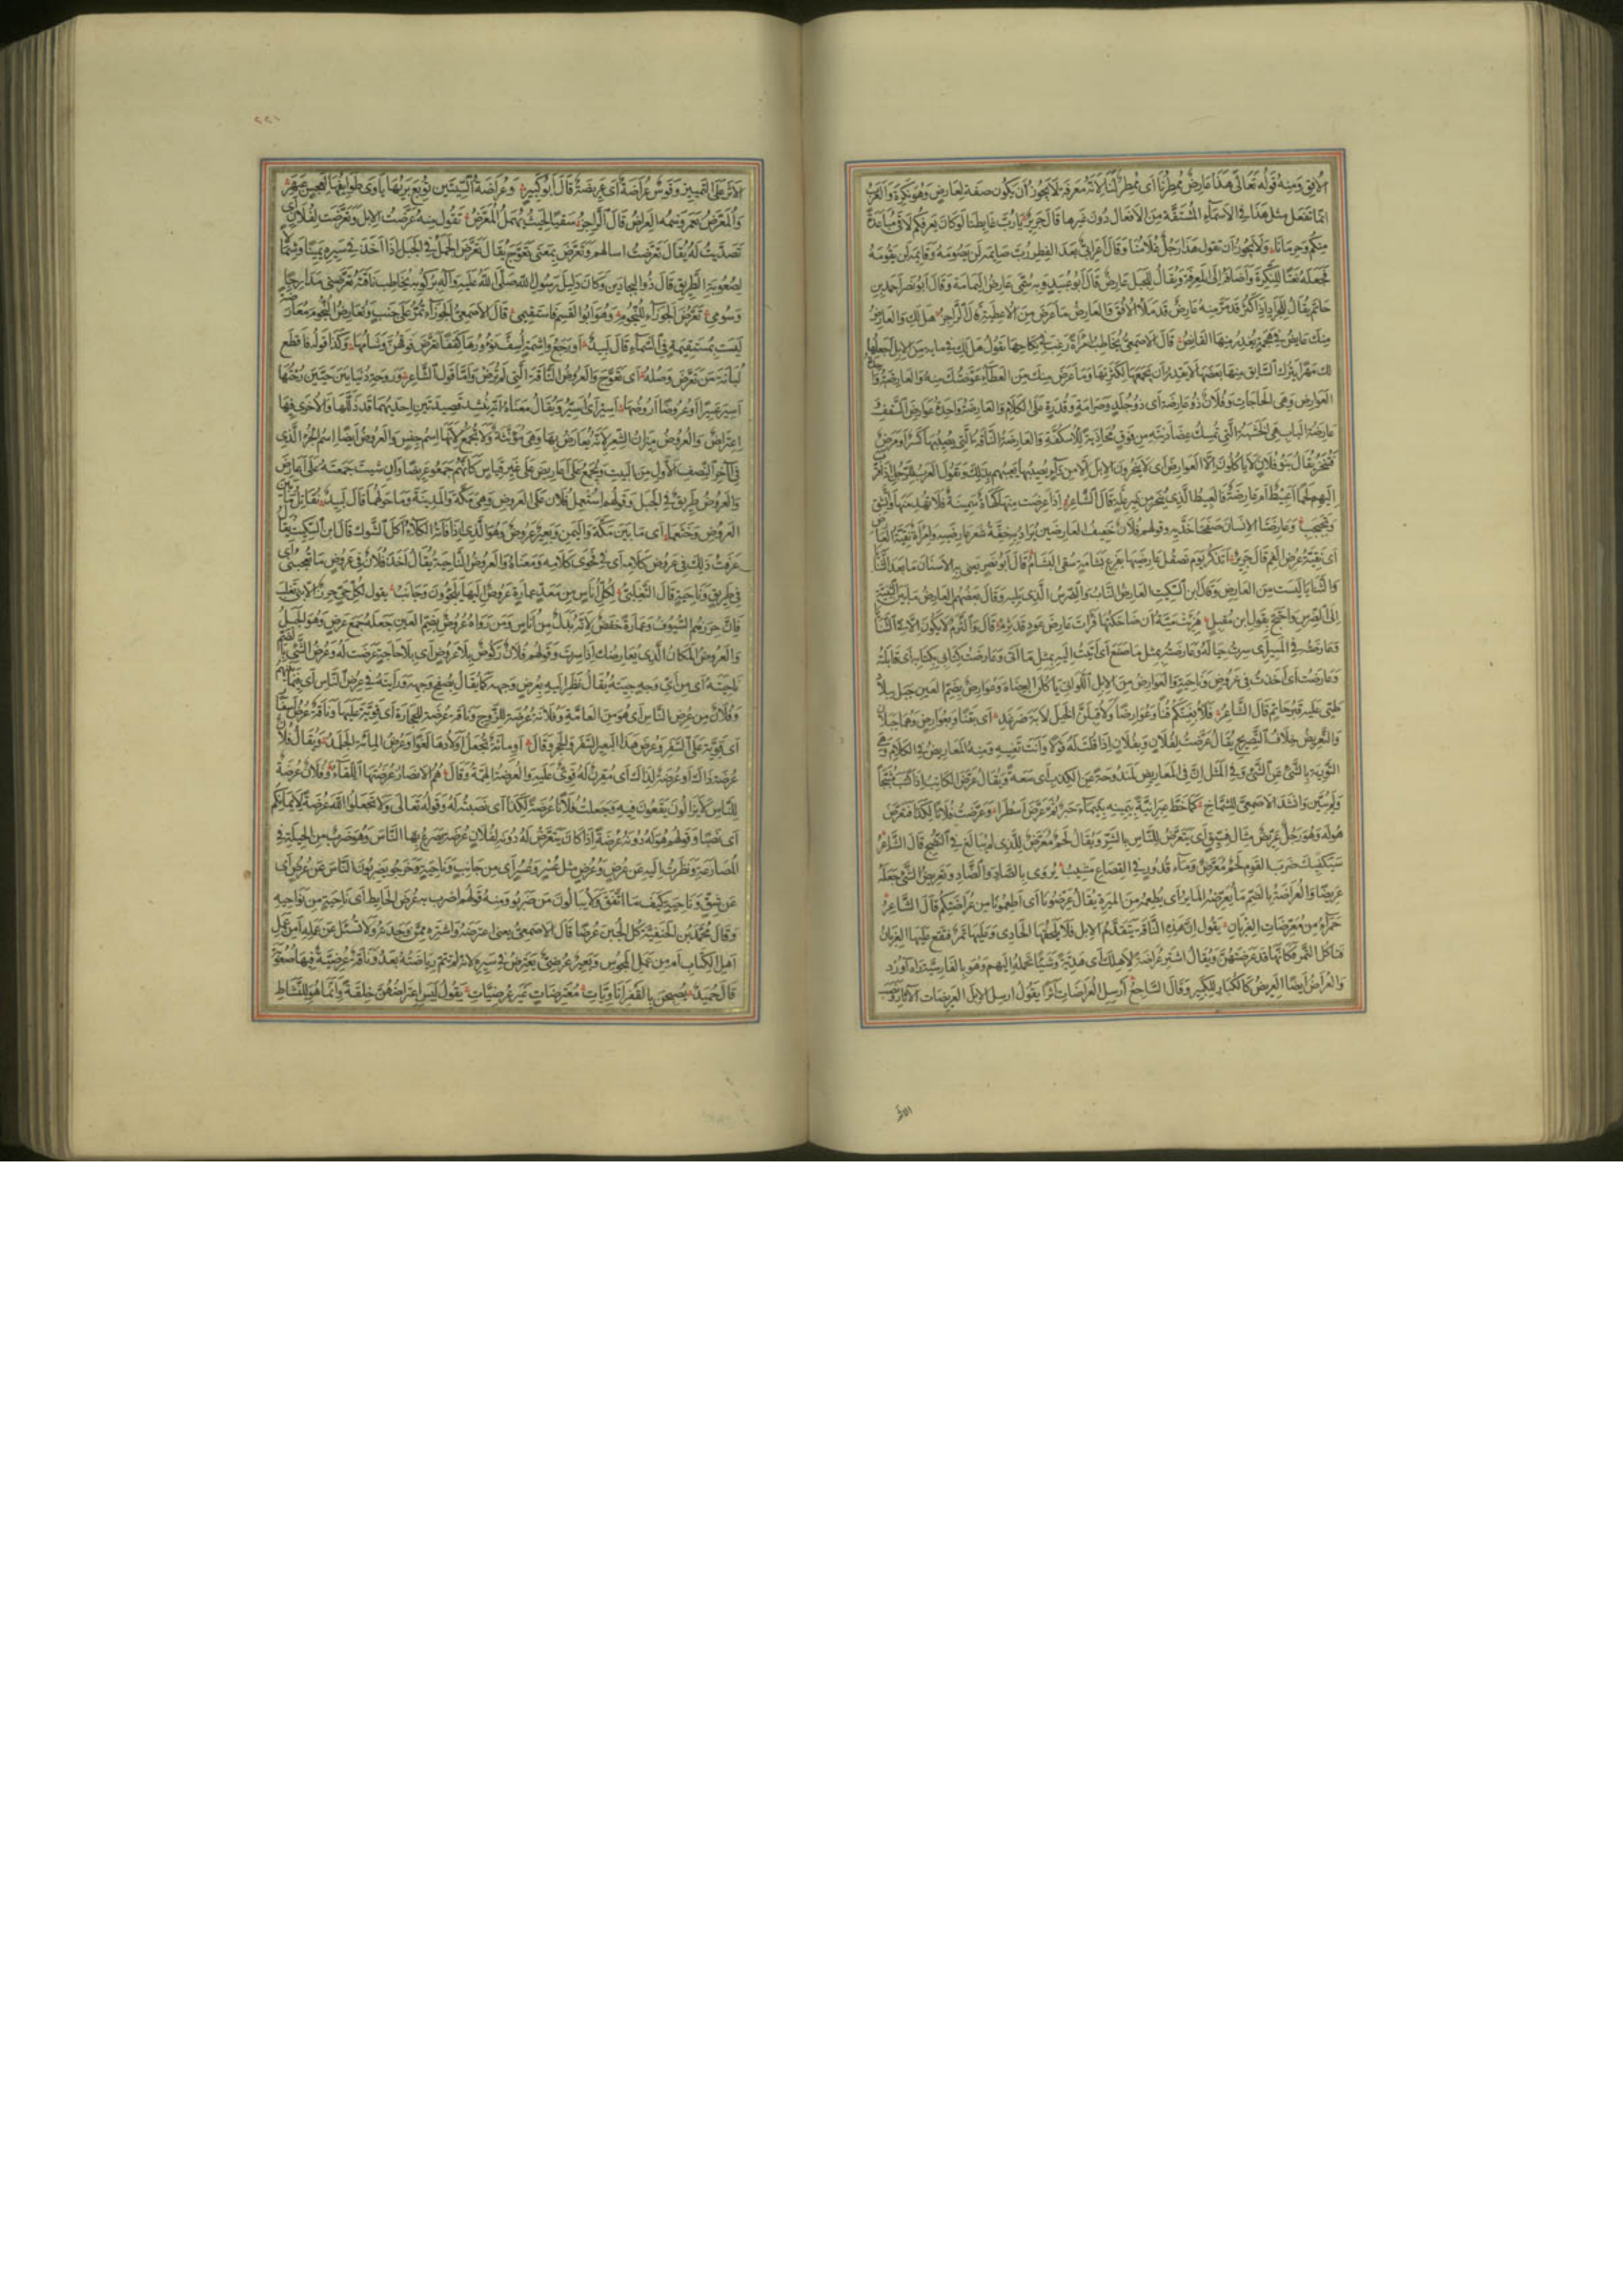 الأفق ومنه قوله تعالى هذا عارض ممطرنا أي ممطر لنا لأنه معرفة لا يجوز أن يكون صفة لعارض وهو نكرة والعرب
إنما تفعل مثل هذا في الأسماء المشتقة من الأفعال دون غيرها قال جرير يا رب غابطنا لو كان يعرفكم لاقى مباعدة
منكم وحرمانا ولا يجوز أن تقول هذا رجل غلامنا وقال أعرابي بعد الفطر رب صائمه لن يصومه وقائمه لن يقومه
فجعله نعتا للنكرة وأضافه إلى المعرفة ويقال للجبل عارض قال أبو عبيد وبه سمي عارض اليمامة وقال أبو نصر أحمد بن
حاتم يقال للجراد إذا كثر قد مر منه عارض قد ملأ الأفق والعارض ما عرض من الأعطية قال الراجز هل لك والعارض
منك عائض في هجمة يغدر منها القابض قال الأصمعي يخاطب امرأة رغب في نكاحها يقول هل لك في مائة من الإبل أجعلها
لك مهرا يترك السابق منها بعضها لا يقدر أن يجمعها لكثرتها وما عرض منك من العطاء عوضتك منه والعارضة واحدة
العوارض وهي الحاجات وفلان ذو عارضة أي ذو جلد وصرامة وقدرة على الكلام والعارضة واحدة عوارض السقف
عارضة الباب هي الخشبة التي تمسك عضادتيه من فوق محاذية للأسكفة والعارضة الناقة التي يصيبها كسر أو مرض
فتنحر يقال بنو فلان لا يأكلون إلا العوارض أي لا ينحرون الإبل إلا من داء يصيبها يعيبهم بذلك وتقول العرب للرجل إذا قرب
إليهم لحما أعبيط أم عارضة فالعبيط الذي ينحر من غير علة قال الشاعر إذا عرضت منها كهاة سمينة فلا تهد منها واتشق
وتجبجب وعارضتا الإنسان صفحتا خديه وقولهم فلان خفيف العارضين يراد به خفة شعر عارضيه وامرأة نقية العارض
أي نقية عرض الفم قال جرير أتذكر يوم تصقل عارضيها بفرع بشامة سقي البشام قال أبو نصر يعني به الأسنان ما بعد الثنايا
والثنايا ليست من العارض وقال ابن السكيت العارض الناب والضرس الذي يليه وقال بعضهم العارض ما بين الثنية
إلى الضرس واحتج بقول ابن مقبل هزئت مية أن ضاحكتها فرأت عارض عود قد ثرم قال والثرم لا يكون إلا في الثنايا
وعارضه في المسير أي سرت حياله وعارضته بمثل ما صنع أي أتيت إليه بمثل ما أتى وعارضت كتابي بكتابه أي قابلته
وعارضت أي أخذت في عروض وناحية والعوارض من الإبل اللواتي يأكلن العضاه وعوارض بضم العين جبل ببلاد
طيئ عليه قبر حاتم قال الشاعر فلأبغينكم قنا وعوارضا ولأقبلن الخيل لابة ضرغد أي بقنا وبعوارض وهما جبلان
والتعريض خلاف التصريح يقال عرضت لفلان وبفلان إذا قلت قولا وأنت تعنيه ومنه المعاريض في الكلام وهي
التورية بالشيء عن الشيء وفي المثل إن في المعاريض لمندوحة عن الكذب أي سعة ويقال عرض الكاتب إذا كتب مثبجا
ولم يبين وأنشد الأصمعي للشماخ كما خط عبرانية بيمينه بتيماء حبر ثم عرض أسطرا وعرضت فلانا لكذا فتعرض
هو له وهو رجل عريض مثال فسيق أي يتعرض للناس بالشر ويقال لحم معرض للذي لم يبالغ في النضج قال الشاعر
سيكفيك ضرب القوم لحم معرض وماء قدور في القصاع مشيب يروى بالصاد والضاد وتعريض الشيء جعله
عريضا والعراضة بالضم ما يعرضه المائر أي يطعمه من الميرة يقال عرضونا أي أطعمونا من عراضتكم قال الشاعر
حمراء من معرضات الغربان يقول إن هذه الناقة تتقدم الإبل فلا يلحقها الحادي وعليها تمر فتقع عليها الغربان
فتأكل التمر فكأنها قد عرضتهن ويقال اشتر عراضة لأهلك أي هدية وشيئا تحمله إليهم وهو بالفارسية راه آورد
والعراض أيضا العريض كالكبار للكبير وقال الساجع أرسل العراضات أثرا يقول أرسل الإبل العريضات الآثار
الأثر
٢٢١
الأثر على التمييز وقوس عراضة أي عريضة قال أبو كبير وعراضة السيتين توبع بريها تأوي طوائفها لعجس عبهر
والمعرض نعم وسمه العراض قال الراجز سقيا بحيث يهمل المعرض تقول منه عرضت الإبل وتعرضت لفلان أي
تصديت له يقال تعرضت أسألهم وتعرض بمعنى تعوج يقال تعرض الجمل في الجبل إذا أخذ في سيره يمينا وشمالا
لصعوبة الطريق قال ذو البجادين وكان دليل رسول الله صلى الله عليه وآله بركوبة يخاطب ناقته تعرضي مدارجا
وسومي تعرض الجوزاء للنجوم وهو أبو القسم فاستقيمي قال الأصمعي الجوزاء تمر على جنب وتعارض النجوم معارضة
ليست بمستقيمة في السماء قال لبيد أو رجع واشمة أسف نؤورها كففا تعرض فوقهن وشامها وكذا قوله فاقطع
لبانة من تعرض وصله أي تعوج والعروض الناقة التي لم ترض وأما قول الشاعر وروحة دنيا بين حيين رحتها
أسير عسيرا أو عروضا أروضها أسير أي أسير ويقال معناه أنه ينشد قصيدتين إحديهما قد ذللها والأخرى فيها
اعتراض والعروض ميزان الشعر لأنه يعارض بها وهي مؤنثة ولا تجمع لأنها اسم جنس والعروض أيضا اسم الجزء الذي
في آخر النصف الأول من البيت ويجمع على أعاريض على غير قياس كأنهم جمعوا إعريضا وإن شئت جمعته على أعارض
والعروض طريق في الجبل وقولهم استعمل فلان على العروض وهي مكة والمدينة وما حولهما قال لبيد نقاتل ما بين
العروض وخثعما أي ما بين مكة واليمن وبعير عروض وهو الذي إذا فاته الكلأ أكل الشوك قال ابن السكيت يقال
عرفت ذلك في عروض كلامه أي في فحوى كلامه ومعناه والعروض الناحية يقال أخذ فلان في عروض ما تعجبني أي
في طريق وناحية قال التغلبي لكل أناس من معد عمارة عروض إليها يلجؤون وجانب يقول لكل حي حرز إلا بني تغلب
فإن حرزهم السيوف وعمارة خفض لأنه بدل من أناس ومن رواه عروض بضم العين جعله جمع عرض وهو الجبل
والعروض المكان الذي يعارضك إذا سرت وقولهم فلان ركوض بلا عروض أي بلا حاجة عرضت له وعرض الشيء بالضم
ناحيته أي من أي وجه جئته يقال نظر إليه بعرض وجهه كما يقال بصفح وجهه ورأيته في عرض الناس أي فيما بينهم
وفلان من عرض الناس أي هو من العامة وفلانة عرضة للزوج وناقة عرضة للحجارة أي قوية عليها وناقة عرض أسفار
أي قوية على السفر وعرض هذا البعير السفر والحجر وقال أو مائة تجعل أولادها لغوا وعرض المائة الجلمد ويقال فلان
عرضة ذاك أو عرضة لذاك أي مقرن له قوي عليه والعرضة الهمة وقال هم الأنصار عرضتها اللقاء وفلان عرضة
للناس لا يزالون يقعون فيه وجعلت فلانا عرضة لكذا أي نصبته له وقوله تعالى ولا تجعلوا الله عرضة لأيمانكم
أي نصبا وقولهم هو له دونه عرضة إذا كان يتعرض له دونه لفلان عرضة يصرع بها الناس وهو ضرب من الحيلة في
المصارعة ونظرت إليه عن عرض وعرض مثل عسر وعسر أي من جانب وناحية وخرجوا يضربون الناس عن عرض أي
عن شق وناحية كيف ما اتفق ولا يبالون من ضربوا ومنه قولهم اضرب به عرض الحائط أي ناحية من نواحيه
وقال محمد بن الحنفية كل الجبن عرضا قال الأصمعي يعني اعترضه واشتره ممن وجدته ولا تسئل عن عمله أمن عمل
أهل الكتاب أم من عمل المجوس وبعير عرضي يعترض في سيره لأنه لم تتم رياضته بعد وناقة عرضية فيها صعوبة
قال حميد يصبحن بالقفر أتاويات معترضات غير عرضيات يقول ليس اعتراضهن خلقة وإنما هو للنشاط